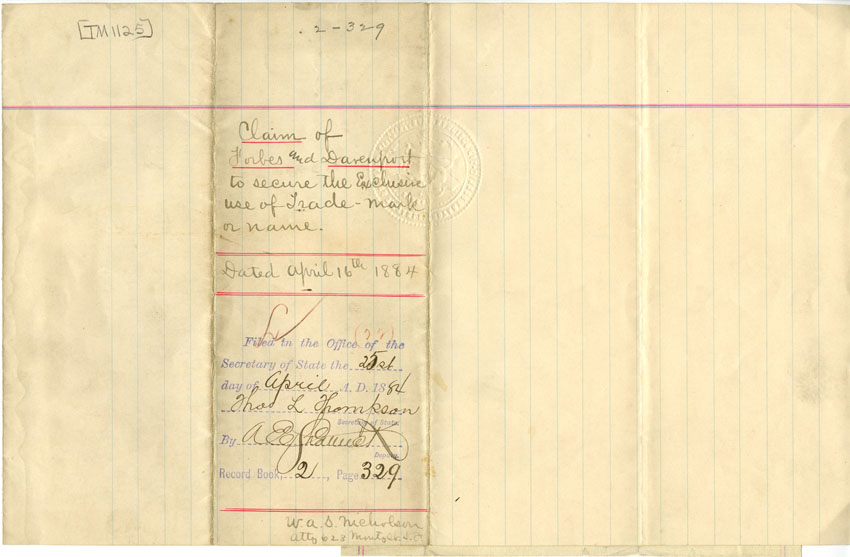 [TM1125]
. 2 - 329
Claim of
Forbes and Davenport
to secure the Exclusive
use of Trade-mark
or name.
Dated April 16th 1884
(329)
Filed in the Office of the
Secretary of State the 25st
day of April A. D. 1884
Thos L Thompson
Secretary of State.
By A E
Deputy.
Record Book, 2, Page 329
W. A. S. Nicholson
Atty 623 Montg'y S.F.